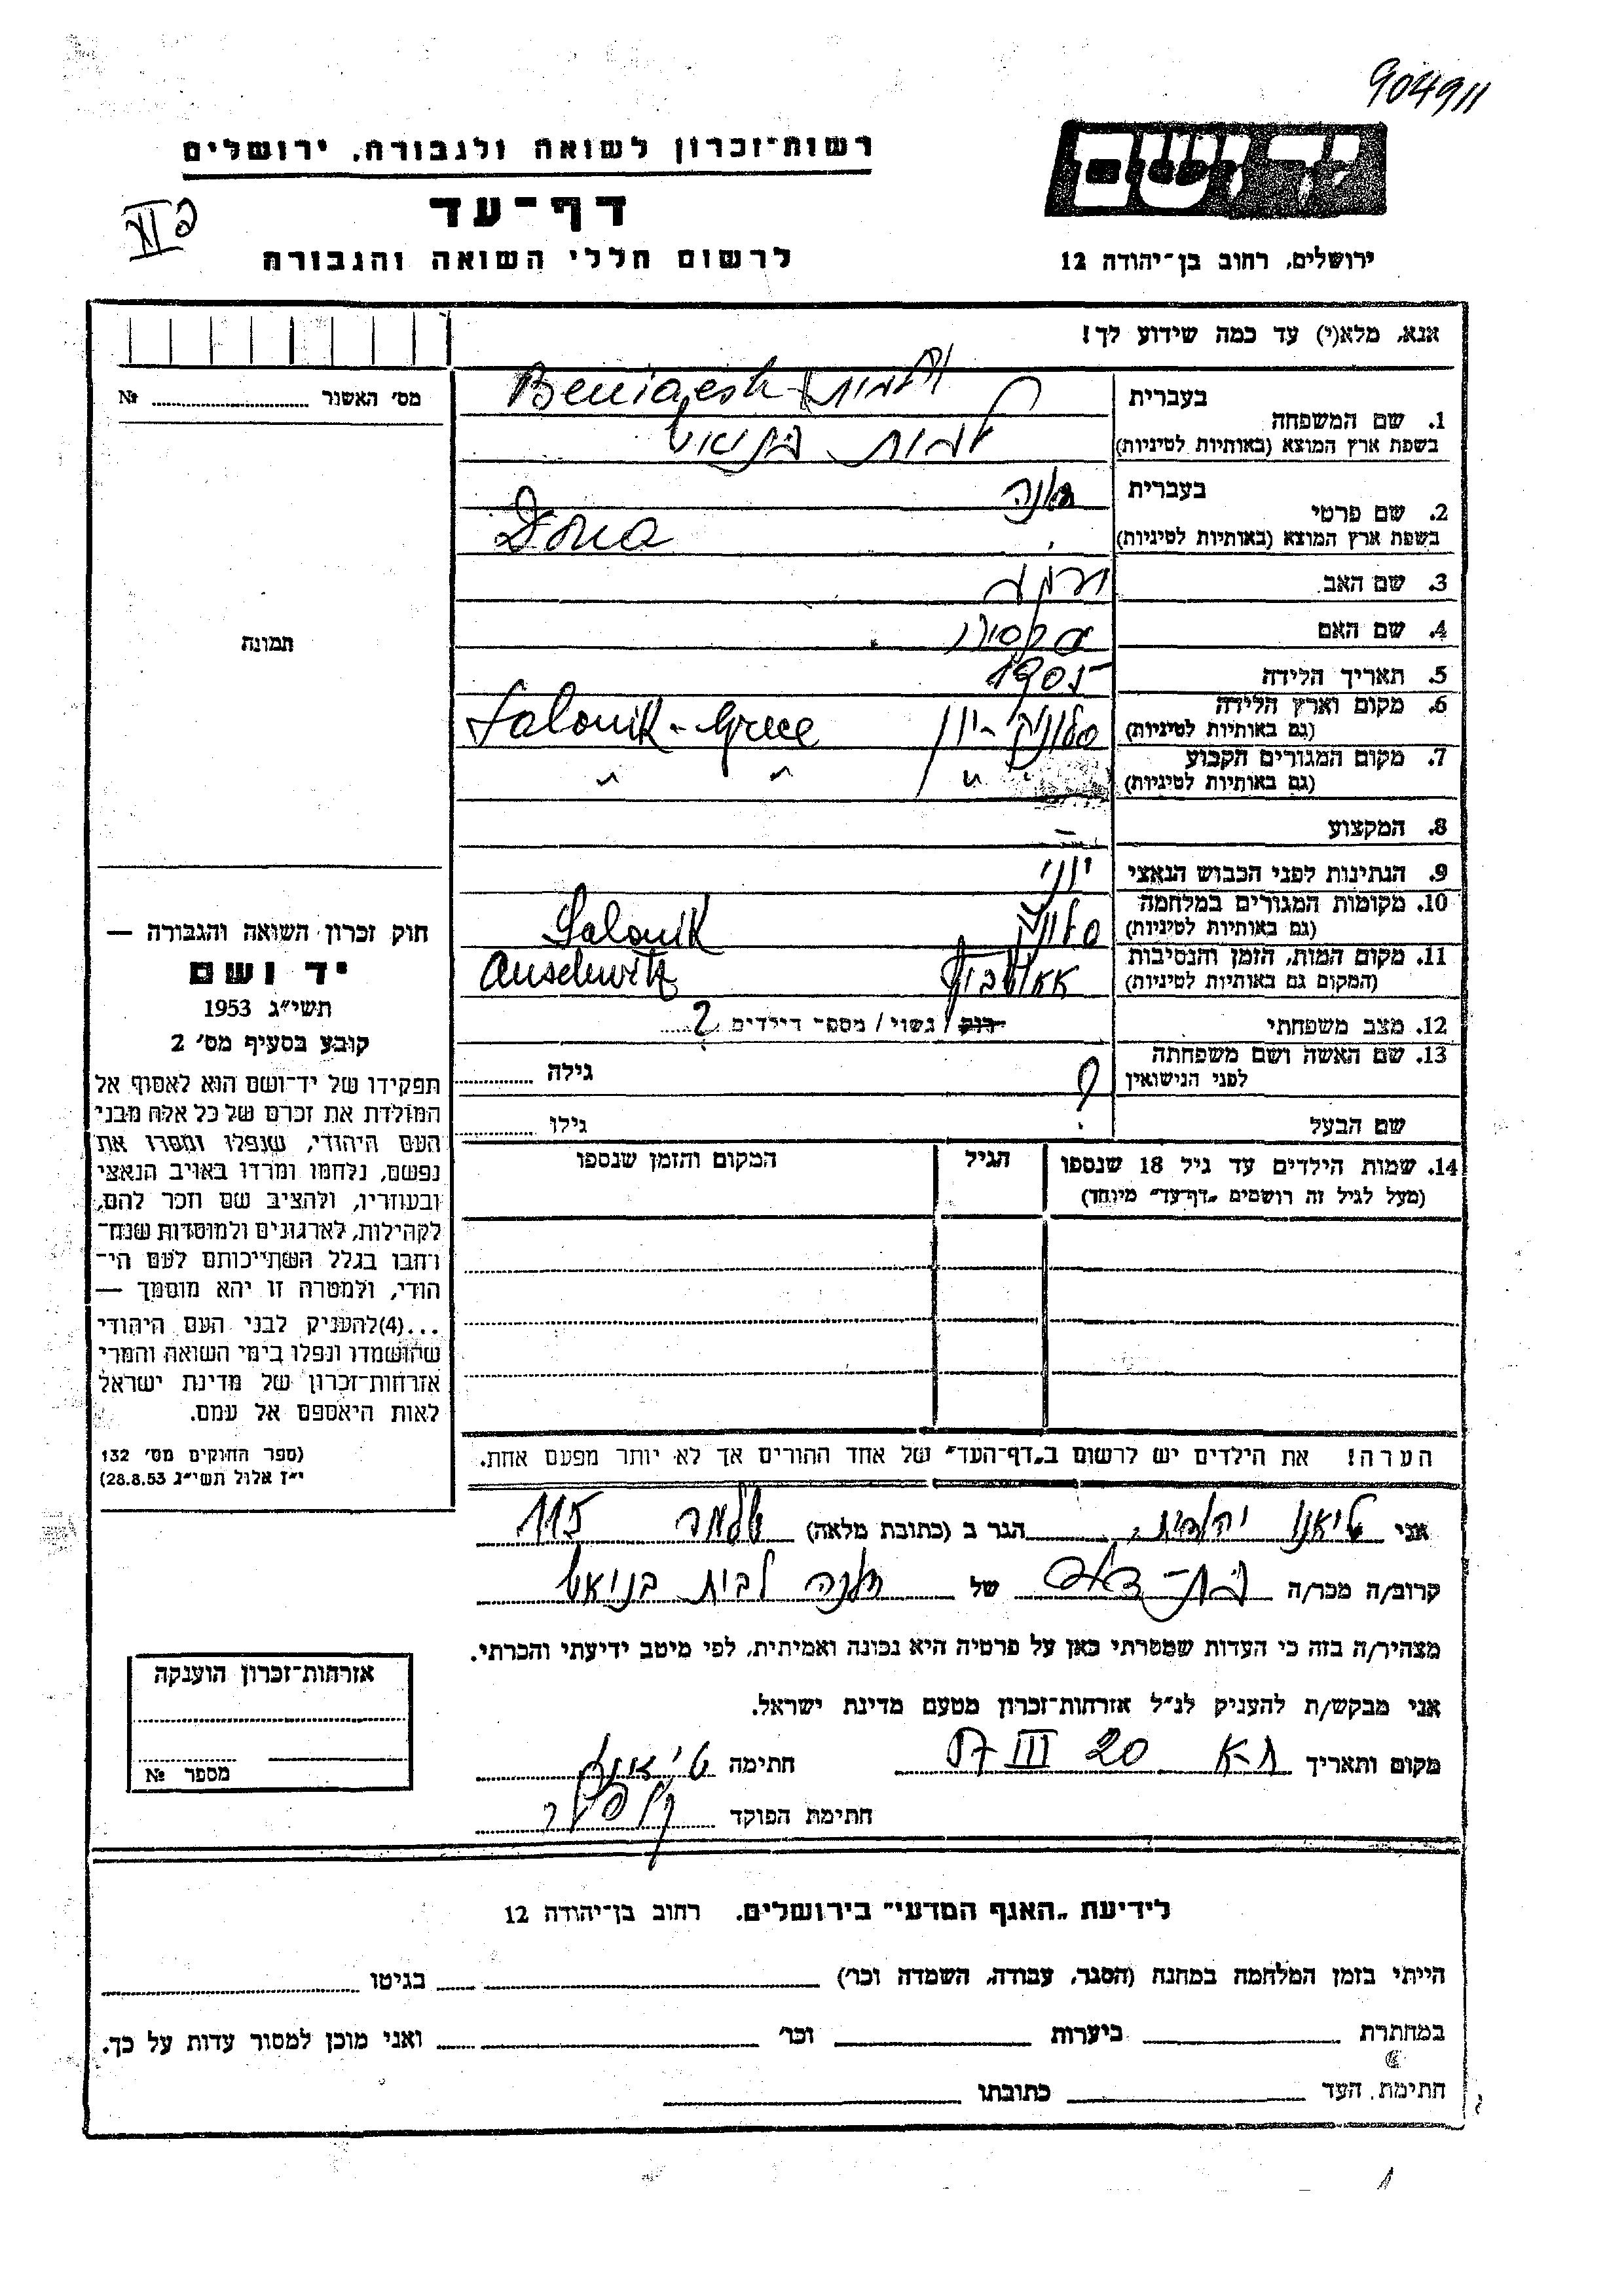 904911
רשות־זכרון לשואה ולגבורה, ירושלים
יד ושם
דף־עד
לרשום חללי השואה והגבורה
ירושלים, רחוב בן־יהודה 12
אנא, מלא(י) עד כמה שידוע לך!
מס׳ האשור № 
1. שם המשפחה
בעברית
בשפת ארץ המוצא (באותיות לטיניות)
לבית
2. שם פרטי
בעברית
בשפת ארץ המוצא (באותיות לטיניות)
Dona
3. שם האב
4. שם האם
5. תאריך הלידה 1905
6. מקום וארץ הלידה
(גם באותיות לטיניות)
סלוניקי - יוון Salonik - Grece
7. מקום המגורים הקבוע
(גם באותיות לטיניות)
" " "
8. המקצוע —
9. הנתינות לפני הכבוש הנאצי יוני
10. מקומות המגורים במלחמה
(גם באותיות לטיניות)
Salonik
11. מקום המות, הזמן והנסיבות
(המקום גם באותיות לטיניות)
Auschwitz
12. מצב משפחתי רוק / נשוי / מספר הילדים ?
13. שם האשה ושם משפחתה
לפני הנישואין
? גילה
שם הבעל גילו
14. שמות הילדים עד גיל 18 שנספו
(מעל לגיל זה רושמים „דף־עד״ מיוחד)
הגיל
המקום והזמן שנספו
הערה! את הילדים יש לרשום ב„דף־העד״ של אחד ההורים אך לא יותר מפעם אחת.
תמונה
חוק זכרון השואה והגבורה —
יד ושם
תשי״ג 1953
קובע בסעיף מס׳ 2
תפקידו של יד־ושם הוא לאסוף אל
המולדת את זכרם של כל אלה מבני
העם היהודי, שנפלו ומסרו את
נפשם, נלחמו ומרדו באויב הנאצי
ובעוזריו, ולהציב שם וזכר להם,
לקהילות, לארגונים ולמוסדות שנח־
רחבו בגלל השתייכותם לעם הי־
הודי, ולמטרה זו יהא מוסמך —
...(4)להעניק לבני העם היהודי
שהושמדו ונפלו בימי השואה והמרי
אזרחות־זכרון של מדינת ישראל
לאות היאספם אל עמם.
(ספר החוקים מס׳ 132
י״ז אלול תשי״ג 28.8.53)
אני הגר ב (כתובת מלאה) 115
קרוב/ה מכר/ה בת-דוד של לבית בניאש
מצהיר/ה בזה כי העדות שמסרתי כאן על פרטיה היא נכונה ואמיתית, לפי מיטב ידיעתי והכרתי.
אני מבקש/ת להעניק לנ״ל אזרחות־זכרון מטעם מדינת ישראל.
מקום ותאריך ת-א 20 III 57 חתימה
חתימת הפוקד
אזרחות־זכרון הוענקה
מספר №
לידיעת „האגף המדעי״ בירושלים. רחוב בן־יהודה 12
הייתי בזמן המלחמה במחנה (הסגר, עבודה, השמדה וכר׳) בגיטו
במחתרת ביערות וכר׳ ואני מוכן למסור עדות על כך.
חתימת העד כתובתו